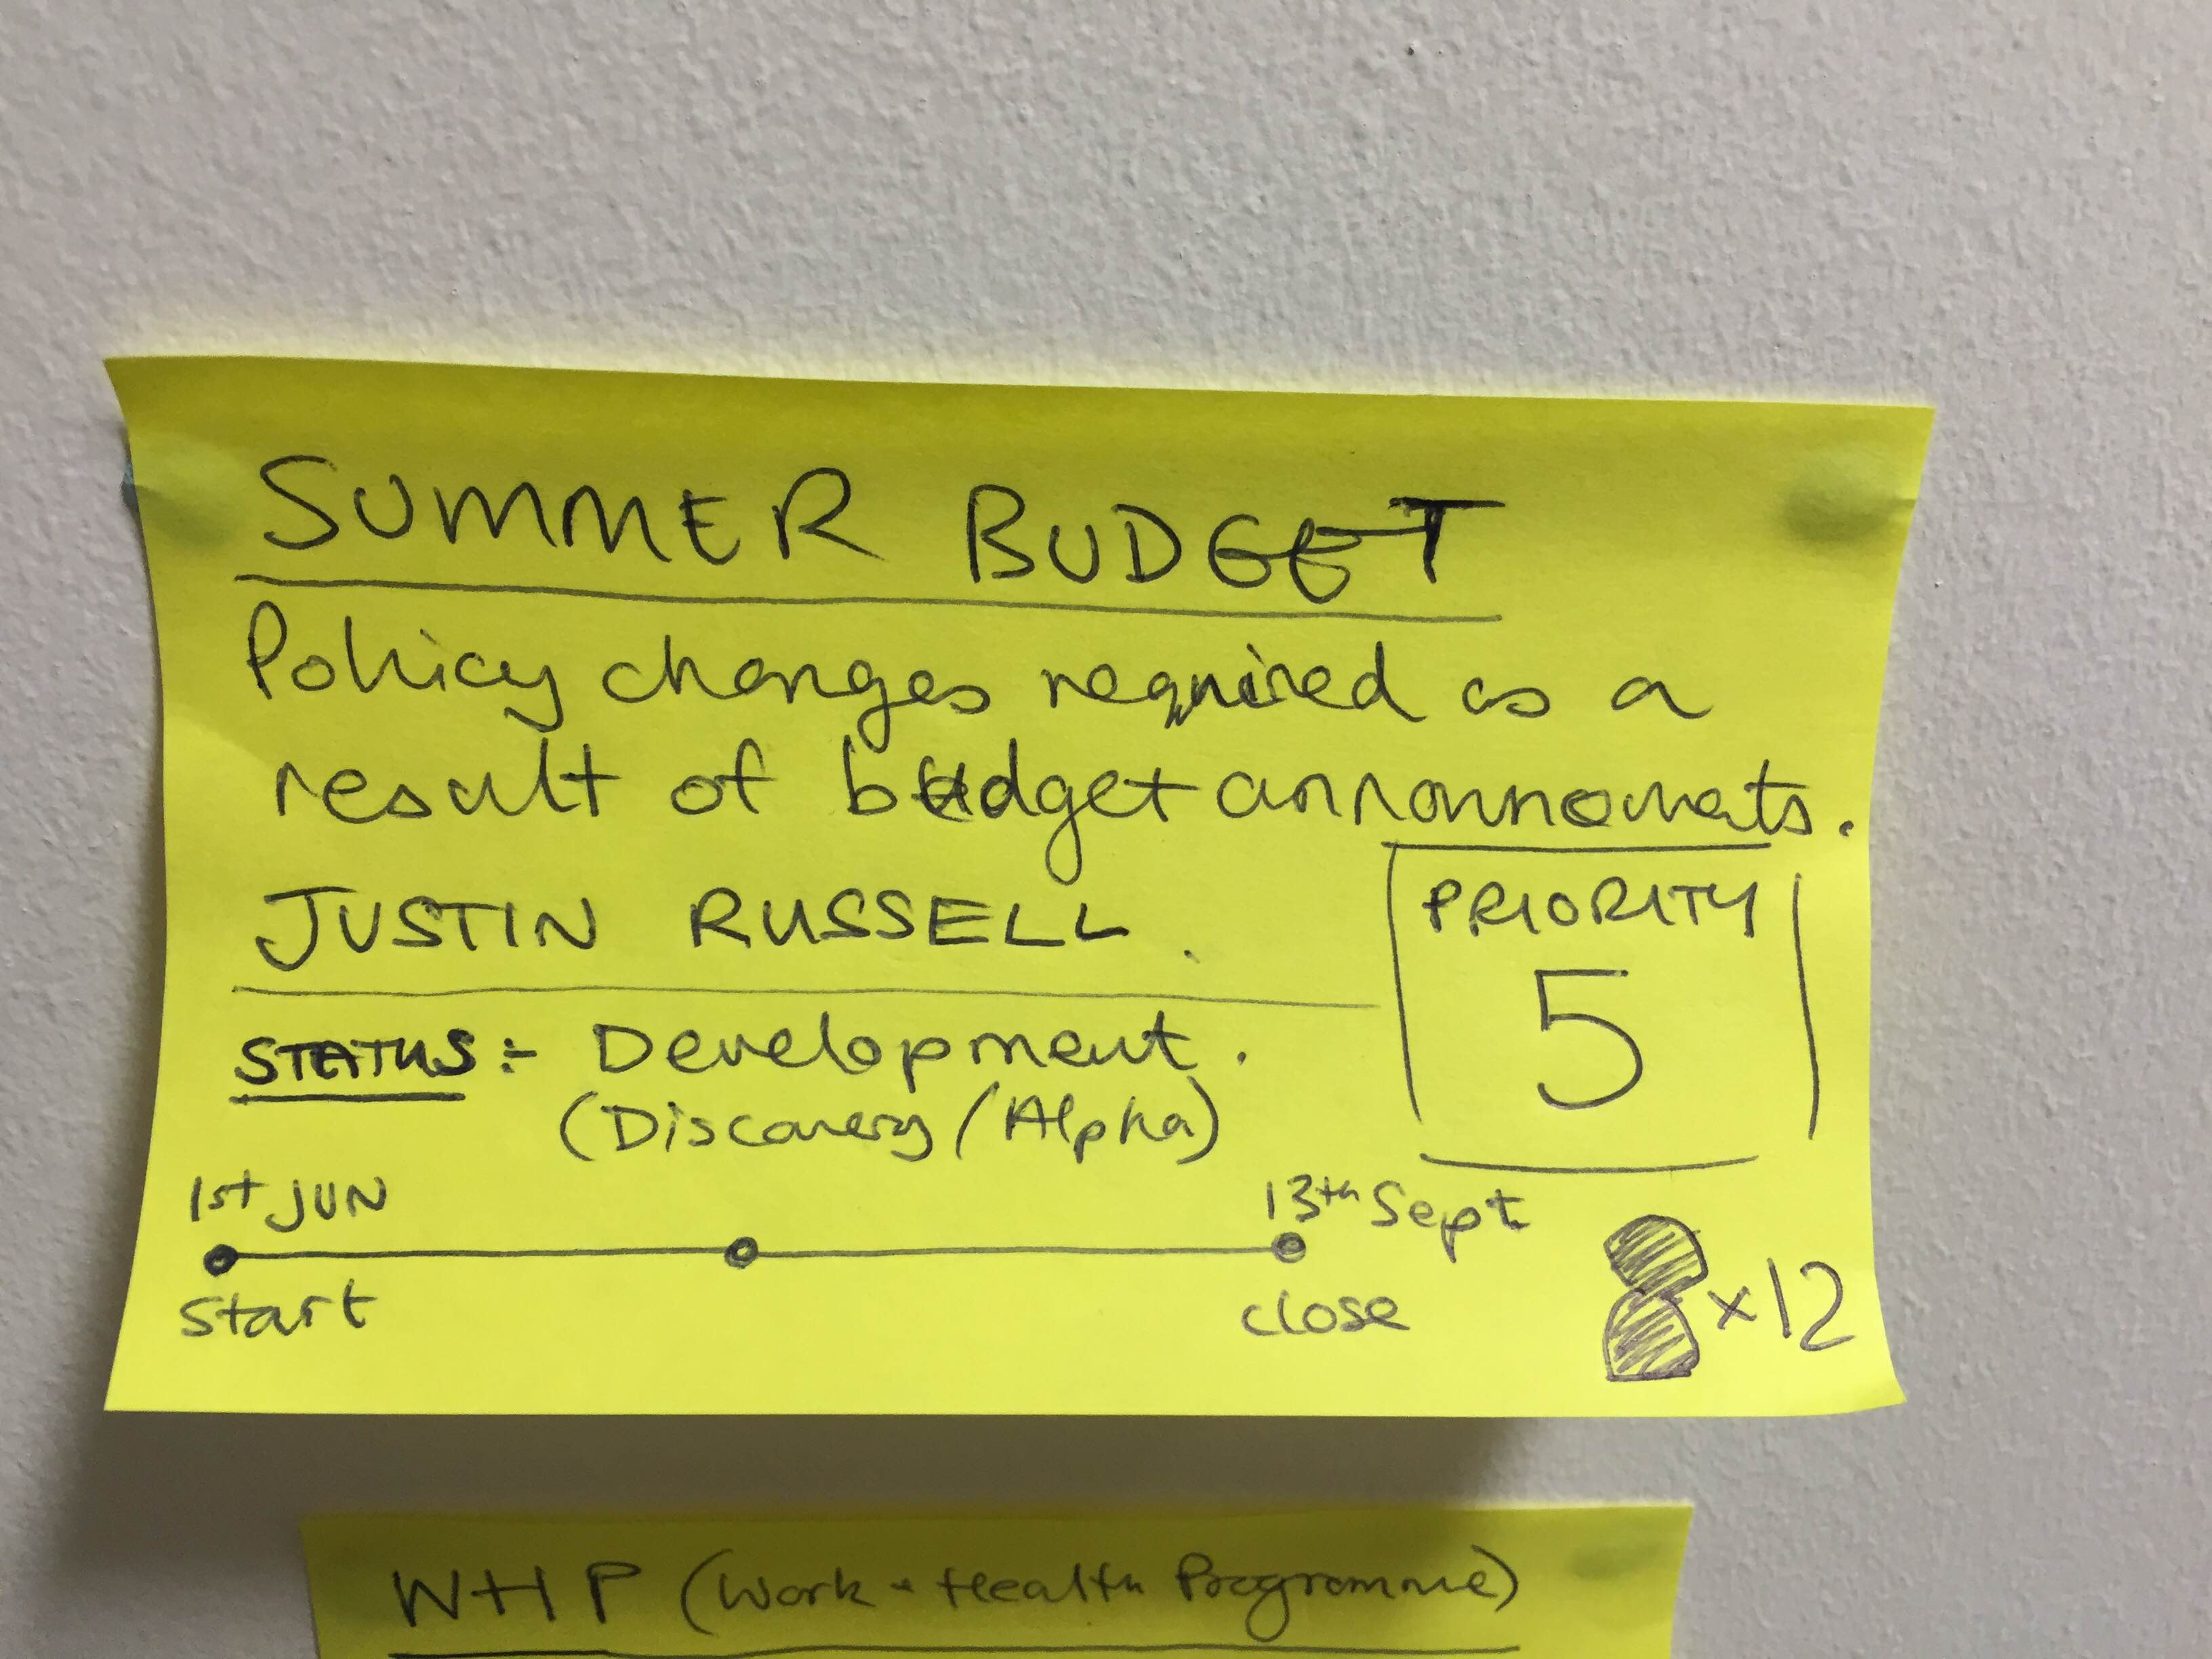 SUMMER BUDGET
Policy changes required as a
result of budget announcements.
JUSTIN RUSSELL.
PRIORITY
5
STATUS:- Development.
(Discovery/Alpha)
1st JUN
13th Sept
start
close
x12
WHP (Work + Health Programme)